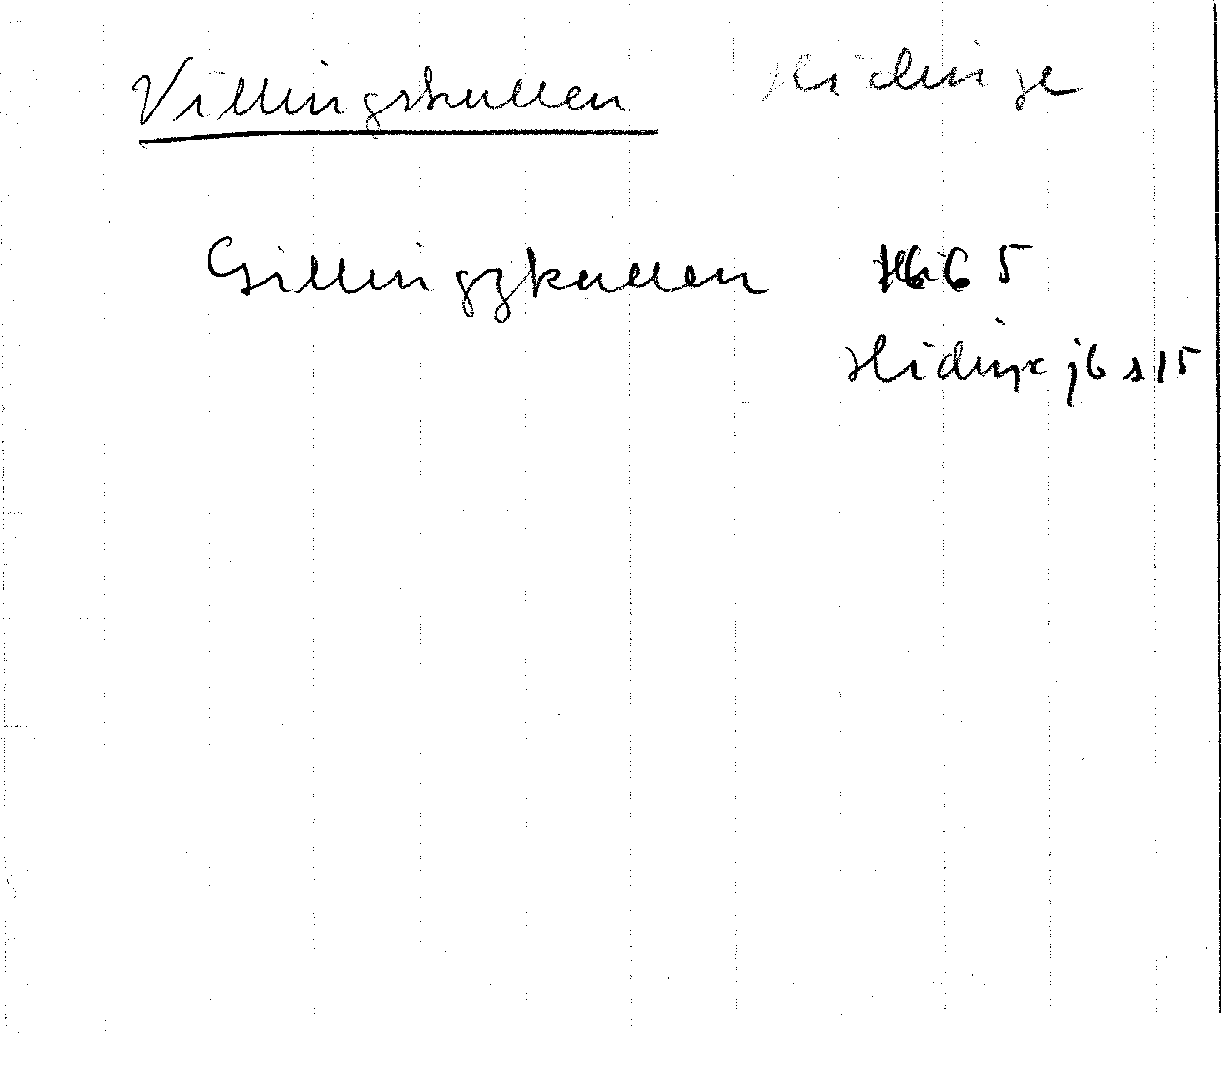 Villingskullen Hidinge
Gillingzkullen 1665
Hidinge jb s 15